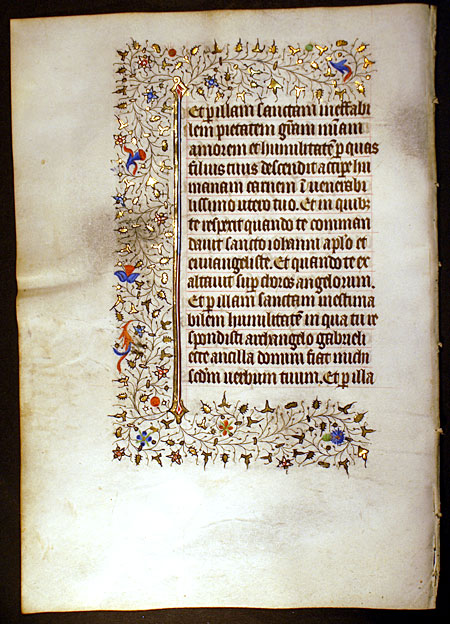 Et p illam sanctam ineffabi
lem pietatem gr̃am mĩam
amorem et humilitatẽ p quas
filius tuus descendit accip̃e hu
manam carnem ĩ venerabi
lissimo utero tuo. Et in quib;
te respexit quando te commen
davit sancto iohanni ap̃lo et
euuangeliste. Et quando te ex
altavit sup̃ choros angelorum.
Et p illam sanctam inestima
bilem humilitatẽ in qua tu re
spondisti archangelo gabrieli
ecce ancilla domini fiat michi
scd̃m verbum tuum. Et p illa